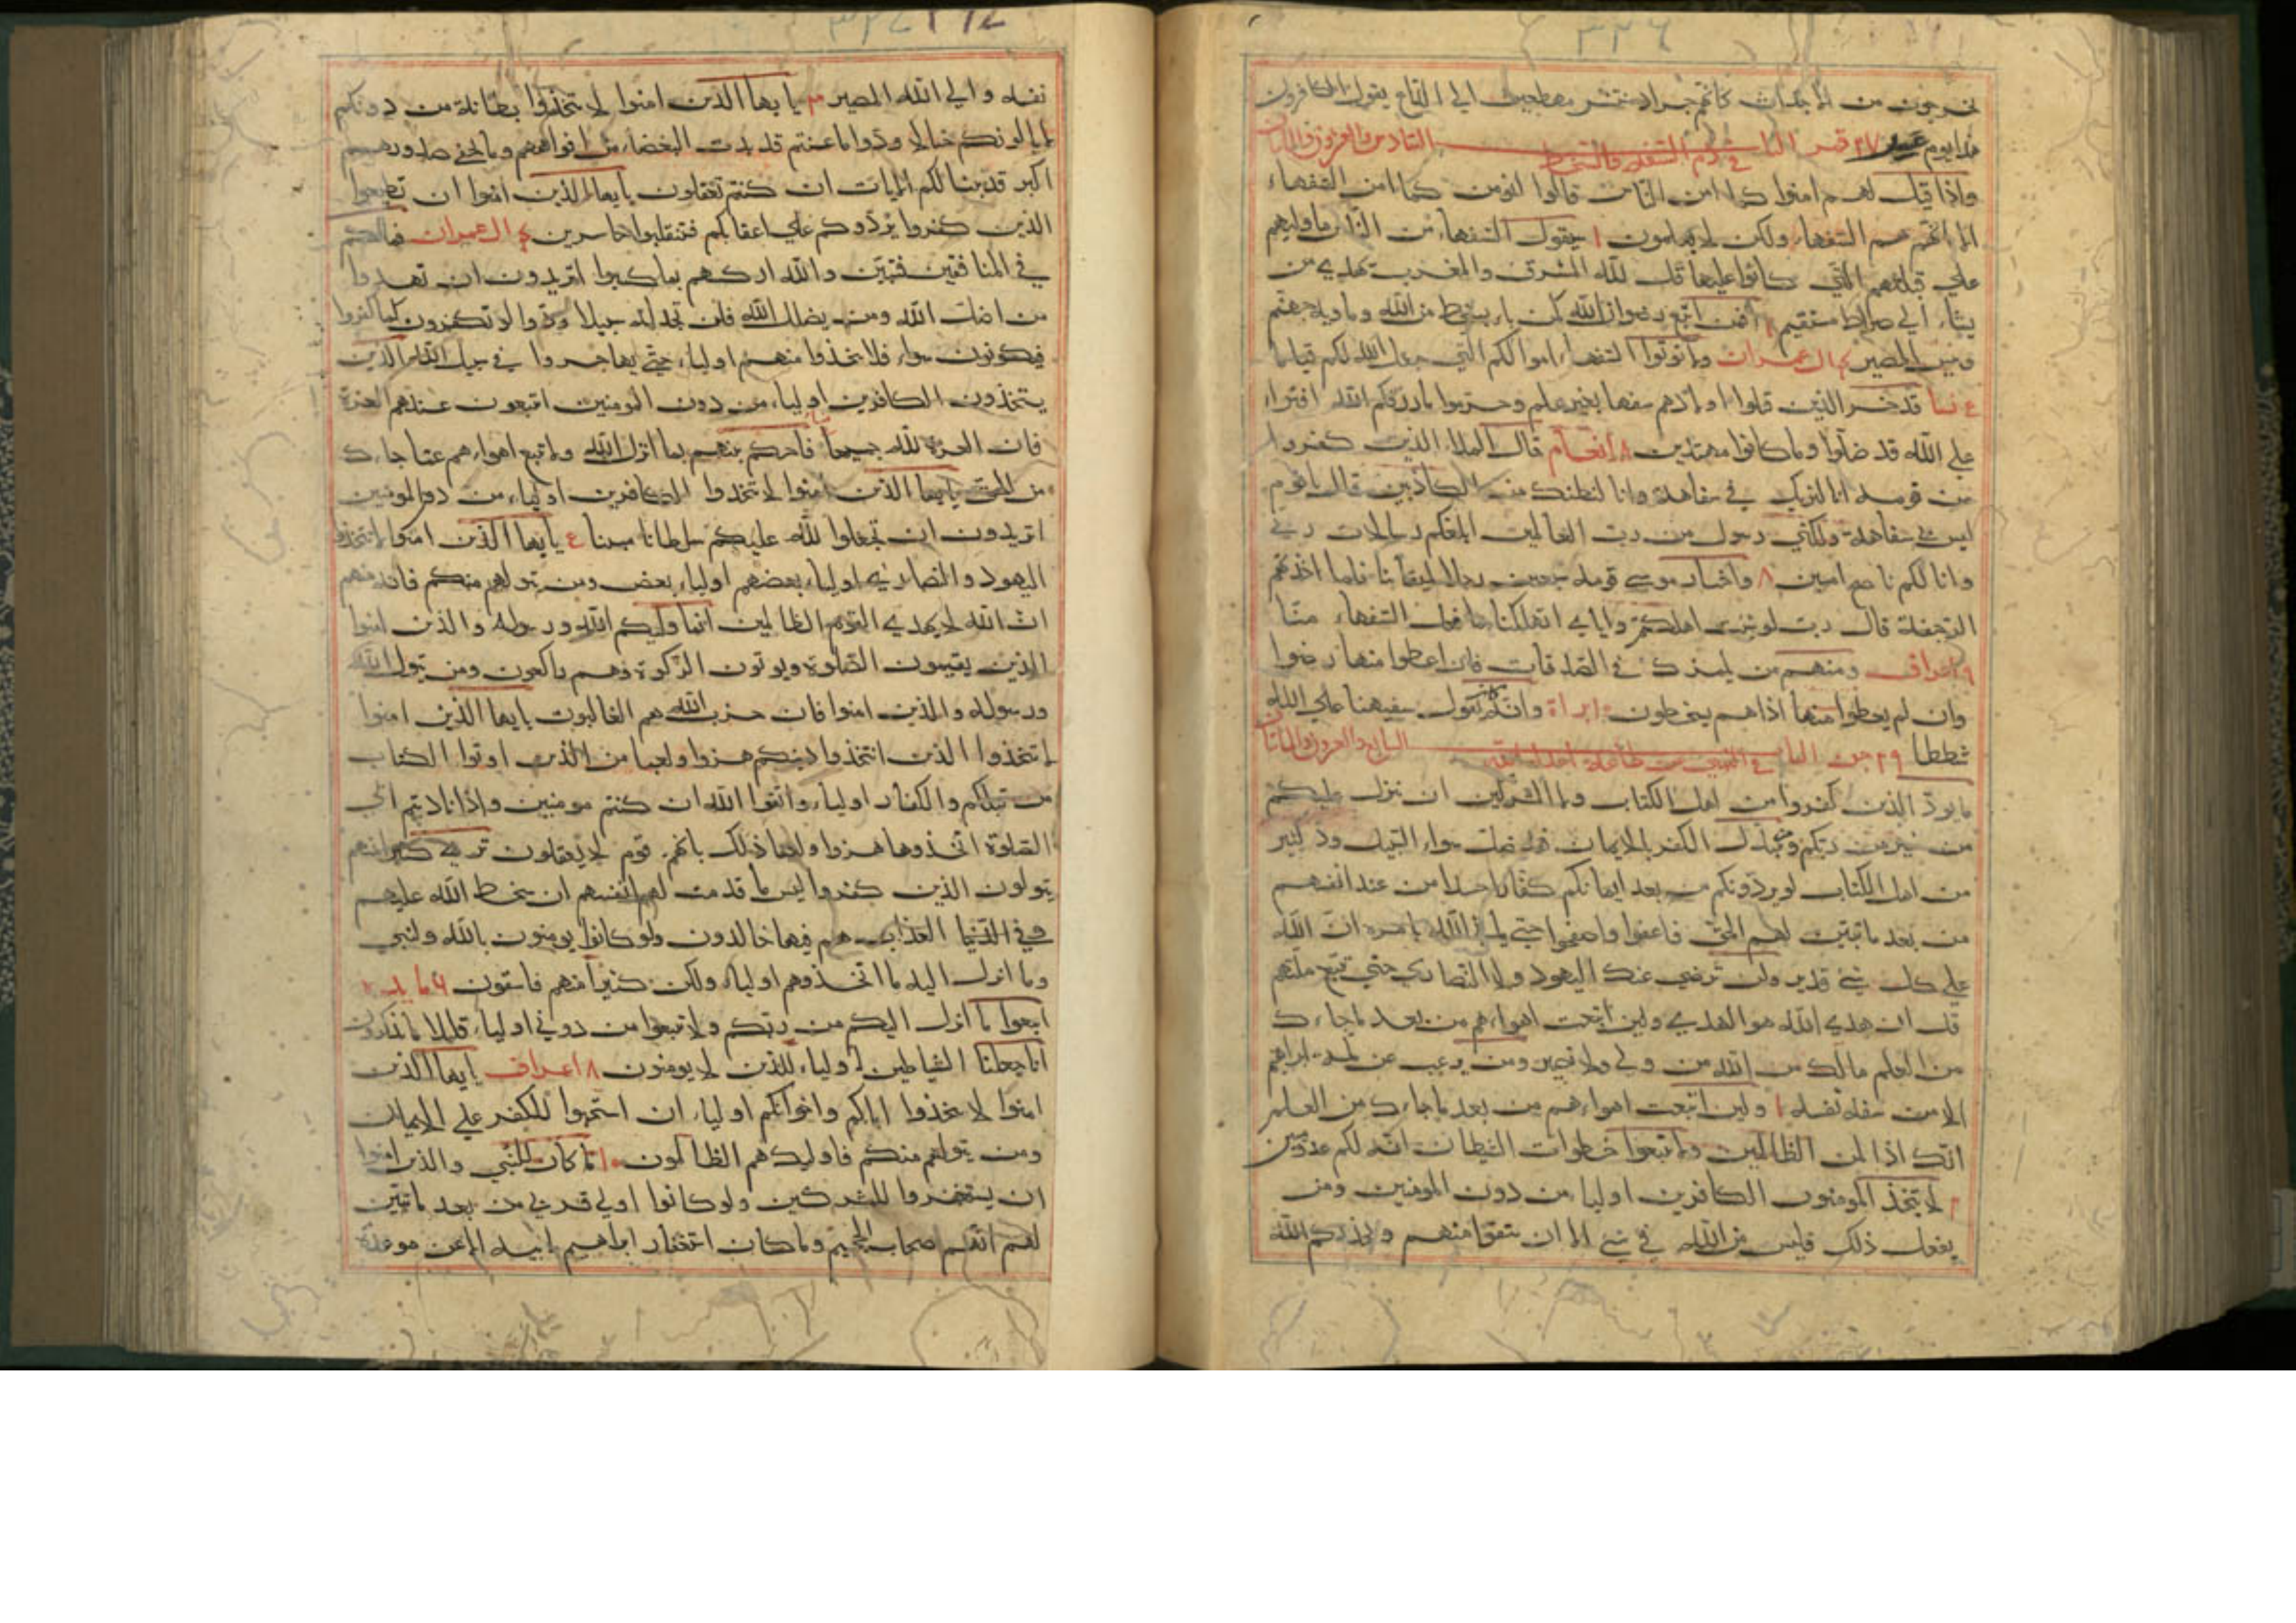 ٣٢٦
يخرجون من الاجداث كانهم جراد منتشر مهطعين الي الداع يقول الكافرون
هذا يوم عسر ٢٧ قمر الباب السادس والعشرون والمائتان في ذم السفه والسخط
واذا قيل لهم امنوا كما امن الناس قالوا انومن كما امن السفهاء
الا انهم هم السفهاء ولكن لا يعلمون ١ سيقول السفهاء من الناس ما وليهم
علي قبلتهم التي كانوا عليها قل لله المشرق والمغرب يهدي من
يشاء الي صراط مستقيم افمن اتبع رضوان الله كمن باء بسخط من الله وماويه جهنم
وبئس المصير ال عمران ولا توتوا السفهاء اموالكم التي جعل الله لكم قياما
٤ نسا قد خسر الذين قتلوا اولادهم سفها بغير علم وحرموا ما رزقكم الله افتراء
علي الله قد ضلوا وما كانوا مهتدين ٨ انعام قال الملاء الذين كفروا
من قومه انا لنريك في سفاهة وانا لنظنك من الكاذبين قال ياقوم
ليس بي سفاهة ولكني رسول من رب العالمين ابلغكم رسالات ربي
وانا لكم ناصح امين ٨ واختار موسي قومه سبعين رجلا لميقاتنا فلما اخذتهم
الرجفة قال رب لو شئت اهلكتهم واياي اتهلكنا بما فعل السفهاء منا
٩ اعراف ومنهم من يلمزك في الصدقات فان اعطوا منها رضوا
وان لم يعطوا منها اذا هم يسخطون ١٠ براة وانه كان يقول سفيهنا علي الله
شططا ٢٩ جن الباب السابع والعشرون والمائتان في النهي عن طاعة اعداء الله
ما يود الذين كفروا من اهل الكتاب ولا المشركين ان ينزل عليكم
من خير من ربكم ومن يتبدل الكفر بالايمان فقد ضل سواء السبيل ود كثير
من اهل الكتاب لو يردونكم من بعد ايمانكم كفارا حسدا من عند انفسهم
من بعد ما تبين لهم الحق فاعفوا واصفحوا حتي ياتي الله بامره ان الله
علي كل شي قدير ولن ترضي عنك اليهود ولا النصاري حتي تتبع ملتهم
قل ان هدي الله هو الهدي ولين اتبعت اهواءهم من بعد ما جاءك
من العلم مالك من الله من ولي ولا نصير ومن يرغب عن ملة ابراهيم
الا من سفه نفسه ١ ولين اتبعت اهواءهم من بعد ما جاءك من العلم
انك اذا لمن الظالمين ولا تتبعوا خطوات الشيطان انه لكم عدو مبين
لا يتخذ المومنون الكافرين اولياء من دون المومنين ومن
يفعل ذلك فليس من الله في شي الا ان تتقوا منهم ويحذركم الله
٣٢٧
نفسه والي الله المصير ٣ يا يها الذين امنوا لا تتخذوا بطانة من دونكم
لا يالونكم خبالا ودوا ما عنتم قد بدت البغضاء من افواههم وما تخفي صدورهم
اكبر قد بينا لكم الايات ان كنتم تعقلون يا يها الذين امنوا ان تطيعوا
الذين كفروا يردوكم علي اعقابكم فتنقلبوا خاسرين ٤ ال عمران فما لكم
في المنافقين فئتين والله اركسهم بما كسبوا اتريدون ان تهدوا
من اضل الله ومن يضلل الله فلن تجد له سبيلا ودوا لو تكفرون كما كفروا
فتكونون سواء فلا تتخذوا منهم اولياء حتي يهاجروا في سبيل الله الذين
يتخذون الكافرين اولياء من دون المومنين ايبتغون عندهم العزة
فان العزة لله جميعا فاحكم بينهم بما انزل الله ولا تتبع اهواءهم عما جاءك
من الحق يا يها الذين امنوا لا تتخذوا الكافرين اولياء من دون المومنين
اتريدون ان تجعلوا لله عليكم سلطانا مبينا ٤ يا يها الذين امنوا لا تتخذوا
اليهود والنصاري اولياء بعضهم اولياء بعض ومن يتولهم منكم فانه منهم
ان الله لا يهدي القوم الظالمين انما وليكم الله ورسوله والذين امنوا
الذين يقيمون الصلوة ويوتون الزكوة وهم راكعون ومن يتول الله
ورسوله والذين امنوا فان حزب الله هم الغالبون يا يها الذين امنوا
لا تتخذوا الذين اتخذوا دينكم هزوا ولعبا من الذين اوتوا الكتاب
من قبلكم والكفار اولياء واتقوا الله ان كنتم مومنين واذا ناديتم الي
الصلوة اتخذوها هزوا ولعبا ذلك بانهم قوم لا يعقلون تري كثيرا منهم
يتولون الذين كفروا لبيس ما قدمت لهم انفسهم ان سخط الله عليهم
وفي العذاب هم فيها خالدون ولو كانوا يومنون بالله والنبي
وما انزل اليه ما اتخذوهم اولياء ولكن كثيرا منهم فاسقون ٦ مايده
اتبعوا ما انزل اليكم من ربكم ولا تتبعوا من دونه اولياء قليلا ما تذكرون
انا جعلنا الشياطين اولياء للذين لا يومنون ٨ اعراف يا يها الذين
امنوا لا تتخذوا اباكم واخوانكم اولياء ان استحبوا الكفر علي الايمان
ومن يتولهم منكم فاوليك هم الظالمون ١٠ ما كان للنبي والذين امنوا
ان يستغفروا للمشركين ولو كانوا اولي قربي من بعد ما تبين
لهم انهم اصحاب الجحيم وما كان استغفار ابراهيم لابيه الا عن موعدة